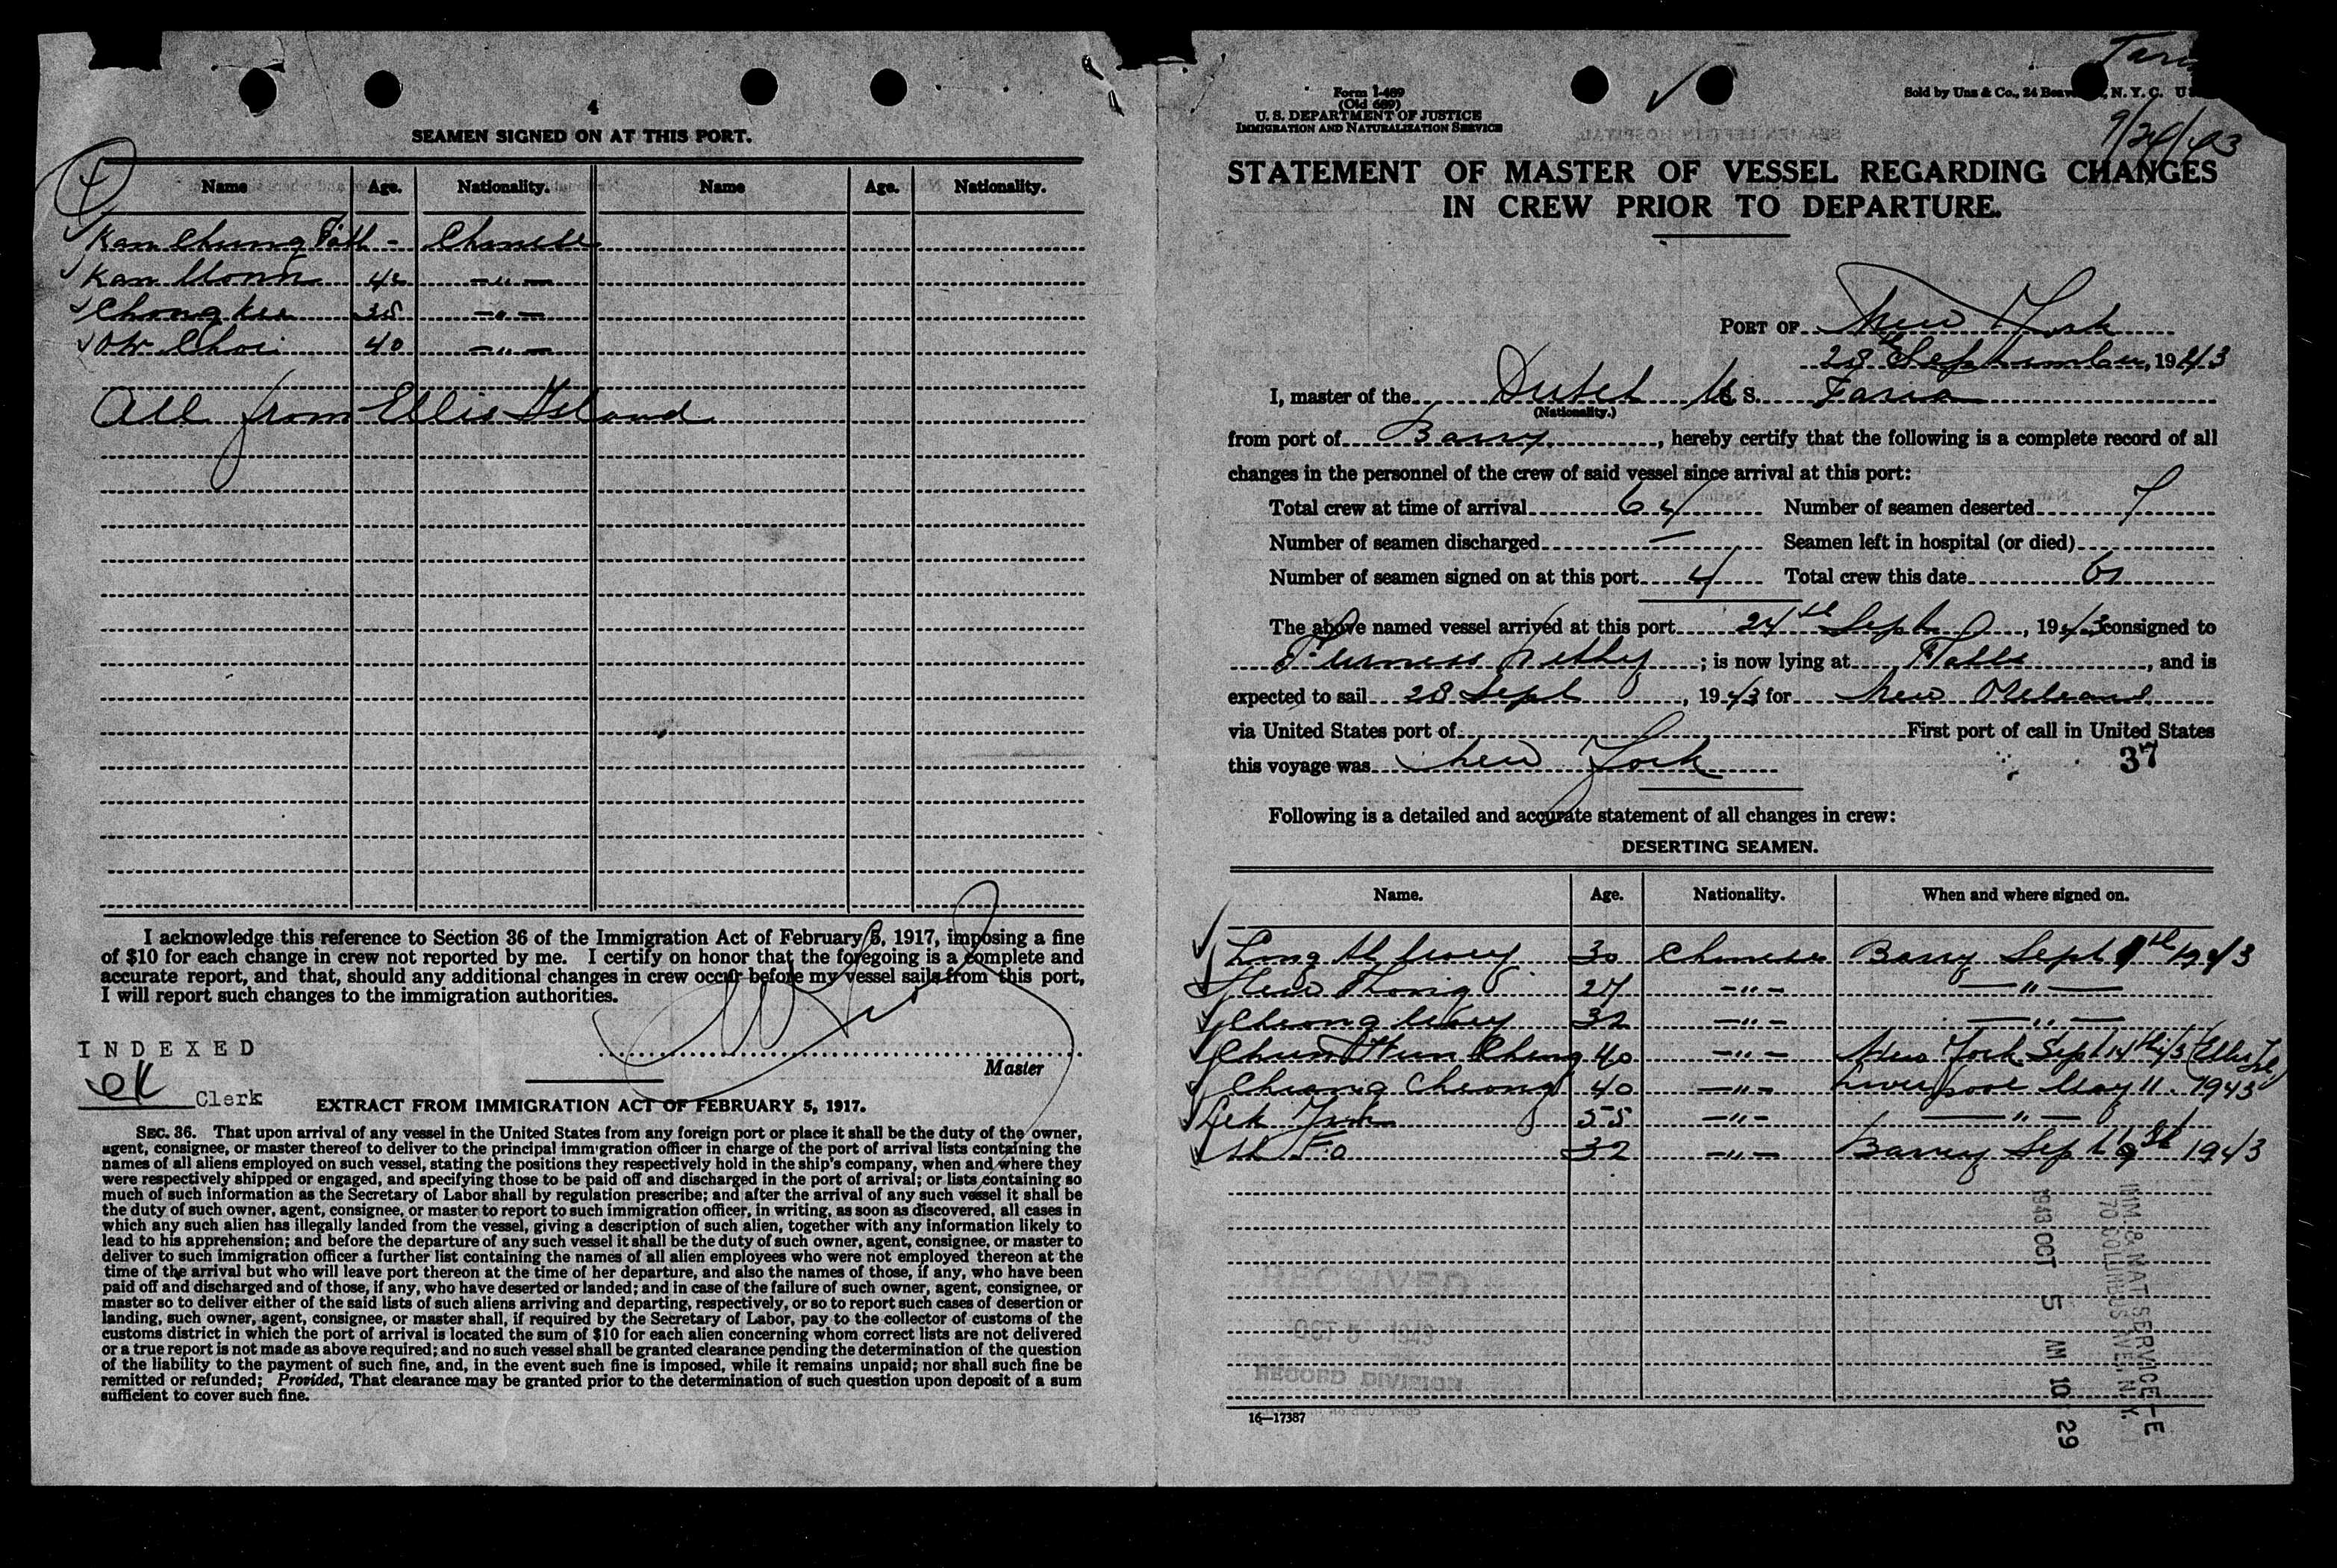 4
SEAMEN SIGNED ON AT THIS PORT.
Name Age. Nationality. Name Age. Nationality.
Kan Chung - Chinese
Kan 42 -"-
Chong Kee 35 -"-
Ow Choi 40 -"-
All from Ellis Island
I acknowledge this reference to Section 36 of the Immigration Act of February 5, 1917, imposing a fine
of $10 for each change in crew not reported by me. I certify on honor that the foregoing is a complete and
accurate report, and that, should any additional changes in crew occur before my vessel sails from this port,
I will report such changes to the immigration authorities.
Master
INDEXED
Clerk
EXTRACT FROM IMMIGRATION ACT OF FEBRUARY 5, 1917.
SEC. 36. That upon arrival of any vessel in the United States from any foreign port or place it shall be the duty of the owner,
agent, consignee, or master thereof to deliver to the principal immigration officer in charge of the port of arrival lists containing the
names of all aliens employed on such vessel, stating the positions they respectively hold in the ship's company, when and where they
were respectively shipped or engaged, and specifying those to be paid off and discharged in the port of arrival; or lists containing so
much of such information as the Secretary of Labor shall by regulation prescribe; and after the arrival of any such vessel it shall be
the duty of such owner, agent, consignee, or master to report to such immigration officer, in writing, as soon as discovered, all cases in
which any such alien has illegally landed from the vessel, giving a description of such alien, together with any information likely to
lead to his apprehension; and before the departure of any such vessel it shall be the duty of such owner, agent, consignee, or master to
deliver to such immigration officer a further list containing the names of all alien employees who were not employed thereon at the
time of the arrival but who will leave port thereon at the time of her departure, and also the names of those, if any, who have been
paid off and discharged and of those, if any, who have deserted or landed; and in case of the failure of such owner, agent, consignee, or
master so to deliver either of the said lists of such aliens arriving and departing, respectively, or so to report such cases of desertion or
landing, such owner, agent, consignee, or master shall, if required by the Secretary of Labor, pay to the collector of customs of the
customs district in which the port of arrival is located the sum of $10 for each alien concerning whom correct lists are not delivered
or a true report is not made as above required; and no such vessel shall be granted clearance pending the determination of the question
of the liability to the payment of such fine, and, in the event such fine is imposed, while it remains unpaid; nor shall such fine be
remitted or refunded; Provided, That clearance may be granted prior to the determination of such question upon deposit of a sum
sufficient to cover such fine.
Form I-489
(Old 689)
U. S. DEPARTMENT OF JUSTICE
IMMIGRATION AND NATURALIZATION SERVICE
Sold by Unz & Co., 24 N. Y. C.
STATEMENT OF MASTER OF VESSEL REGARDING CHANGES
IN CREW PRIOR TO DEPARTURE.
PORT OF New York
28 September, 1943
I, master of the Dutch S. S. Taria
(Nationality.)
from port of Barry, hereby certify that the following is a complete record of all
changes in the personnel of the crew of said vessel since arrival at this port:
Total crew at time of arrival 64 Number of seamen deserted 7
Number of seamen discharged — Seamen left in hospital (or died)
Number of seamen signed on at this port 4 Total crew this date 61
The above named vessel arrived at this port 24th Sept, 1943 consigned to
Furness Withy; is now lying at, and is
expected to sail 28 Sept, 1943 for New Orleans
via United States port of First port of call in United States
this voyage was New York
37
Following is a detailed and accurate statement of all changes in crew:
DESERTING SEAMEN.
Name. Age. Nationality. When and where signed on.
30 Chinese Barry Sept 1943
27 -"- -"-
Cheong 32 -"- -"-
Chun Cheng 40 -"- New York Sept 14th 43 (Ellis Isl)
Cheong 40 -"- Liverpool May 11. 1943
55 -"- -"-
Ah Fo 32 -"- Barry Sept 1943
IMM. & NAT. SERVICE-E
70 COLUMBUS AVE. N.Y.
1943 OCT 5 AM 10 29
RECEIVED
OCT 5
RECORD DIVISION
16—17387